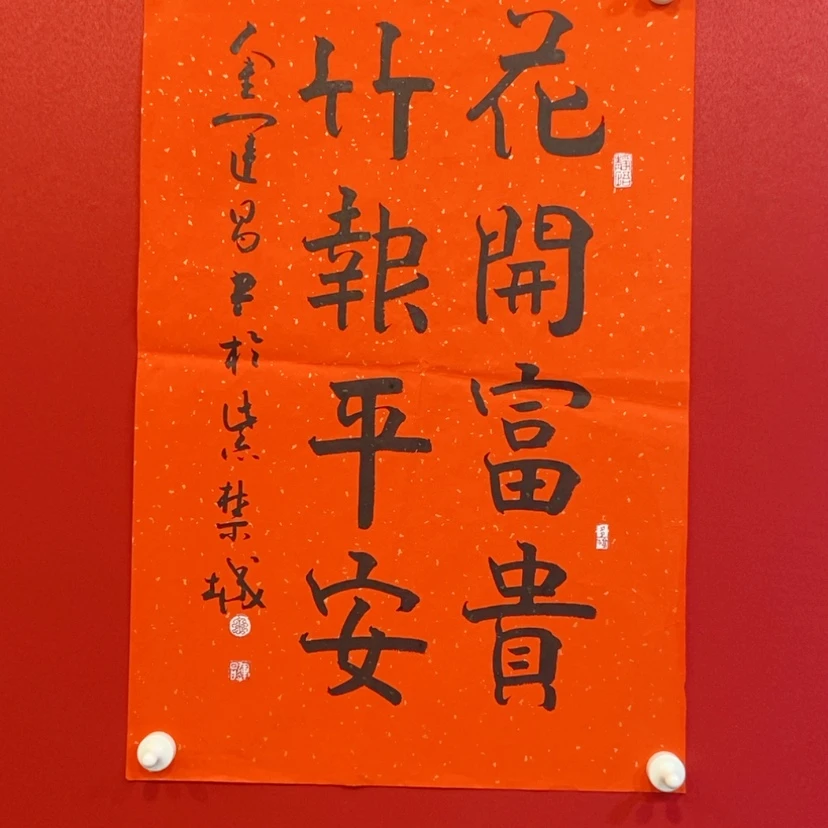 花開富貴
竹報平安
金運昌书於紫禁城